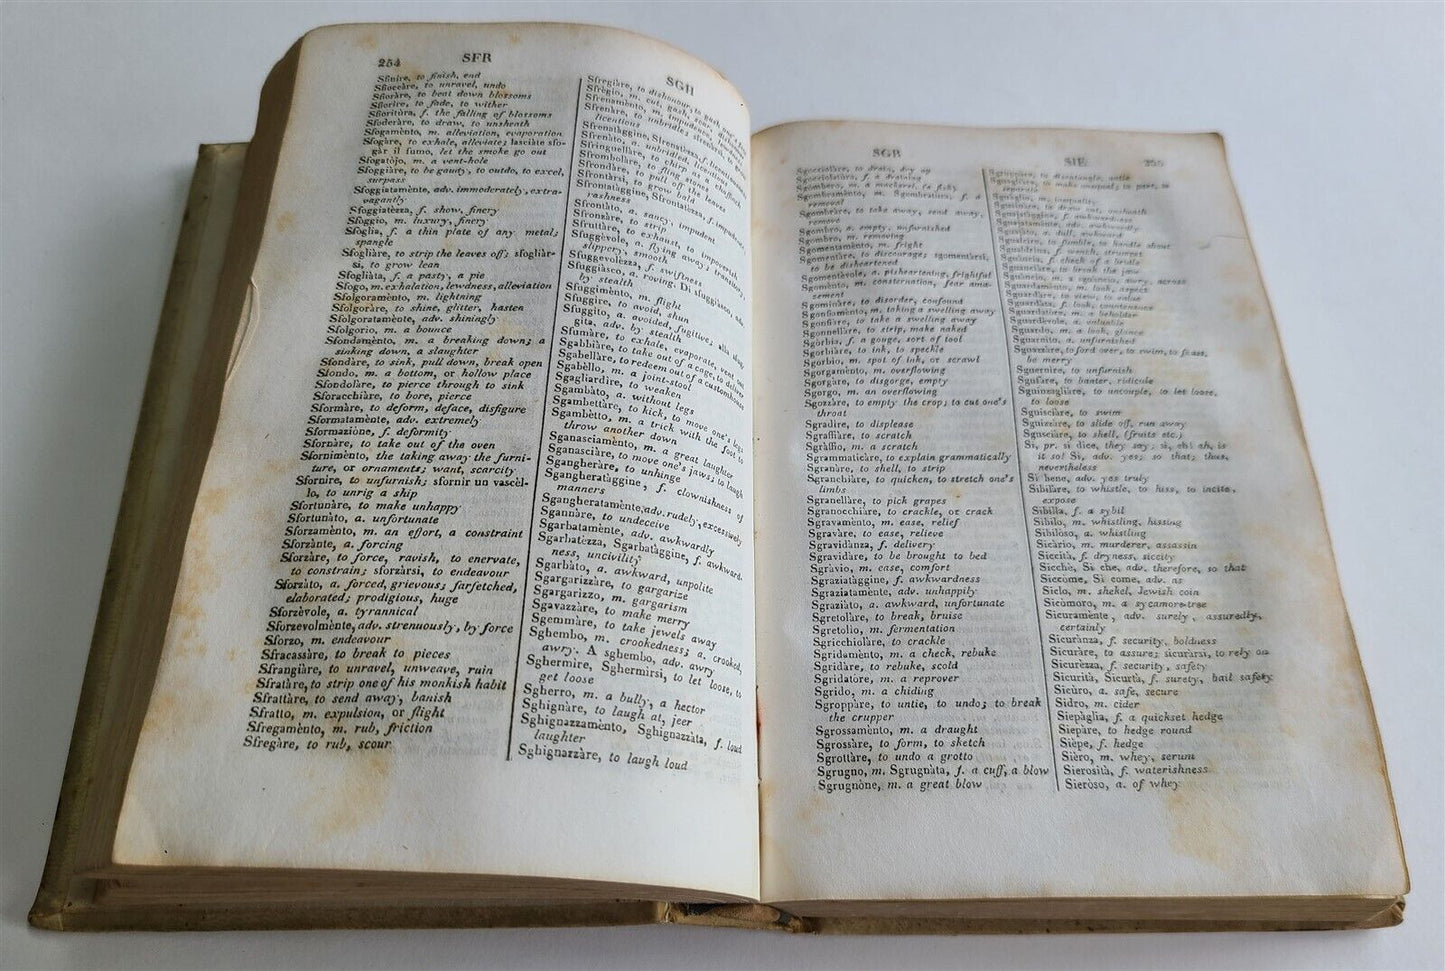 254
SFR
SGH
Sfinire, to finish, end
Sfioccàre, to unravel, undo
Sfioràre, to beat down blossoms
Sfiorìre, to fade, to wither
Sfioritùra, f. the falling of blossoms
Sfoderàre, to draw, to unsheath
Sfogamènto, m. alleviation, evaporation
Sfogàre, to exhale, alleviate; lasciàte sfo-
gàr il fumo, let the smoke go out
Sfogatòjo, m. a vent-hole
Sfoggiàre, to be gaudy, to outdo, to excel,
surpass
Sfoggiatamènte, adv. immoderately, extra-
vagantly
Sfoggiatèzza, f. show, finery
Sfòggio, m. luxury, finery
Sfòglia, f. a thin plate of any metal;
spangle
Sfogliàre, to strip the leaves off; sfogliàr-
si, to grow lean
Sfogliàta, f. a pasty, a pie
Sfogo, m. exhalation, lewdness, alleviation
Sfolgoramènto, m. lightning
Sfolgoràre, to shine, glitter, hasten
Sfolgoratamente, adv. shiningly
Sfolgorìo, m. a bounce
Sfondamènto, m. a breaking down; a
sinking down, a slaughter
Sfondàre, to sink, pull down, break open
Sfondo, m. a bottom, or hollow place
Sfondolàre, to pierce through to sink
Sforacchiàre, to bore, pierce
Sformàre, to deform, deface, disfigure
Sformatamènte, adv. extremely
Sformaziòne, f. deformity
Sfornàre, to take out of the oven
Sfornimènto, the taking away the furni-
ture, or ornaments; want, scarcity
Sfornìre, to unfurnish; sfornìr un vascèl-
lo, to unrig a ship
Sfortunàre, to make unhappy
Sfortunàto, a. unfortunate
Sforzamènto, m. an effort, a constraint
Sforzànte, a. forcing
Sforzàre, to force, ravish, to enervate,
to constrain; sforzàrsi, to endeavour
Sforzàto, a. forced, grievous; farfetched,
elaborated; prodigious, huge
Sforzèvole, a. tyrannical
Sforzevolmènte, adv. strenuously, by force
Sforzo, m. endeavour
Sfracassàre, to break to pieces
Sfrangiàre, to unravel, unweave, ruin
Sfratàre, to strip one of his monkish habit
Sfrattàre, to send away, banish
Sfratto, m. expulsion, or flight
Sfregamènto, m. rub, friction
Sfregàre, to rub, scour
Sfregiàre, to dishonour, to gash
Sfrègio, m. cut, gash, scar,
Sfrenamènto, m. impudence,
licentious
Sfrenàre, to unbridle;
Sfrenatàggine, Sfrenatèzza, f. licentiousness
Sfrenàto, a. unbridled, licentious
Sfringuellàre, to chirp as a chaffinch
Sfrombolàre, to fling stones
Sfrondàre, to pull off the leaves
Sfrontàrsi, to grow bold
Sfrontatàggine, Sfrontatèzza, f. impudence,
rashness
Sfrontàto, a. saucy, impudent
Sfronzàre, to strip
Sfruttàre, to exhaust, to impoverish
Sfuggèvole, a. flying away; transitory,
slippery, smooth
Sfuggevolèzza, f. swiftness
Sfuggiàsco, a. roving. Di sfuggiàsco, adv.
by stealth
Sfuggimènto, m. flight
Sfuggìre, to avoid, shun
Sfuggìto, a. avoided, fugitive; alla sfug-
gita, adv. by stealth
Sfumàre, to exhale, evaporate, vent out
Sgabbiàre, to take out of a cage, to deliver
Sgabellàre, to redeem out of a customhouse
Sgabèllo, m. a joint-stool
Sgagliardìre, to weaken
Sgambàto, a. without legs
Sgambettàre, to kick, to move one's legs
Sgambètto, m. a trick with the foot to
throw another down
Sganasciamènto, m. a great laughter
Sganasciàre, to move one's jaws; to laugh
Sgangheràre, to unhinge
Sgangheratàggine, f. clownishness of
manners
Sgangheratamènte, adv. rudely, excessively
Sgannàre, to undeceive
Sgarbatamènte, adv. awkwardly
Sgarbatèzza, Sgarbatàggine, f. awkward-
ness, uncivility
Sgarbàto, a. awkward, unpolite
Sgargarizzàre, to gargarize
Sgargarìzzo, m. gargarism
Sgavazzàre, to make merry
Sgemmàre, to take jewels away
Sghembo, m. crookedness; a. crooked,
awry. A sghembo, adv. awry
Sghermìre, Sghermìrsi, to let loose, to
get loose
Sgherro, m. a bully, a hector
Sghignàre, to laugh at, jeer
Sghignazzamènto, Sghignazzàta, f. loud
laughter
Sghignazzàre, to laugh loud
SGR
SIE
255
Sgocciolàre, to drain, dry up
Sgocciolatùra, f. a draining
Sgòmbero, m. a mackerel, to fishy
Sgombramènto, m. Sgombratùra, f. a
removal
Sgombràre, to take away, send away,
remove
Sgombro, a. empty, unfurnished
Sgombro, m. removing
Sgomentamènto, m. fright
Sgomentàre, to discourage; sgomentàrsi,
to be disheartened
Sgomentèvole, a. disheartening, frightful
Sgomènto, m. consternation, fear amazement
Sgominàre, to disorder, confound
Sgonfiamènto, m. taking a swelling away
Sgonfiàre, to take a swelling away
Sgonnellàre, to strip, make naked
Sgòrbia, f. a gouge, sort of tool
Sgorbiàre, to ink, to speckle
Sgòrbio, m. spot of ink, or scrawl
Sgorgamènto, m. overflowing
Sgorgàre, to disgorge, empty
Sgorgo, m. an overflowing
Sgozzàre, to empty the crop; to cut one's
throat
Sgradìre, to displease
Sgraffiàre, to scratch
Sgràffio, m. a scratch
Sgrammaticàre, to explain grammatically
Sgranàre, to shell, to strip
Sgranchiàre, to quicken, to stretch one's
limbs
Sgranellàre, to pick grapes
Sgranocchiàre, to crackle, or crack
Sgravamènto, m. ease, relief
Sgravàre, to ease, relieve
Sgravidànza, f. delivery
Sgravidàre, to be brought to bed
Sgràvio, m. ease, comfort
Sgraziatàggine, f. awkwardness
Sgraziatamènte, adv. unhappily
Sgraziàto, a. awkward, unfortunate
Sgretolàre, to break, bruise
Sgretolìo, m. fermentation
Sgricchiolàre, to crackle
Sgridamènto, m. a check, rebuke
Sgridàre, to rebuke, scold
Sgridatòre, m. a reprover
Sgrido, m. a chiding
Sgroppàre, to untie, to undo; to break
the crupper
Sgrossamènto, m. a draught
Sgrossàre, to form, to sketch
Sgrottàre, to undo a grotto
Sgrugno, m. Sgrugnàta, f. a cuff, a blow
Sgrugnòne, m. a great blow
to disentangle, untie
to make unequal; to part, to
separate
inequality
to draw out, unsheath
f. awkwardness
adv. awkwardly
a. dull, awkward
to fumble, to handle about
f. wench, strumpet
f. check of a bridle
to break the jaw
away, across
Sguardamènto, m. look, aspect
Sguardàre, to view, to value
Sguardàta, f. look, countenance
Sguardatòre, m. a beholder
Sguardèvole, a. valuable
Sguardo, m. a look, glance
Sguarnìto, a. unfurnished
Sguazzàre, to ford over, to swim, to feast,
be merry
Sguernìre, to unfurnish
Sgufàre, to banter, ridicule
Sguinzagliàre, to uncouple, to let loose,
to loose
Sguisciàre, to swim
Sguizzàre, to slide off, run away
Sgusciàre, to shell, (fruits etc.)
Si, pr. si dice, they say; si, oh! eh, is
it so! Sì, adv. yes; so that; thus,
nevertheless
Sì bene, adv. yes truly
Sibilàre, to whistle, to hiss, to incite,
expose
Sibilla, f. a sybil
Sìbilo, m. whistling, hissing
Sibilòso, a. whistling
Sicàrio, m. murderer, assassin
Siccità, f. dryness, siccity
Sicchè, Sì che, adv. therefore, so that
Siccòme, Sì come, adv. as
Siclo, m. shekel, Jewish coin
Sicòmoro, m. a sycamore-tree
Sicuramènte, adv. surely, assuredly,
certainly
Sicurànza, f. security, boldness
Sicuràre, to assure; sicuràrsi, to rely on
Sicurèzza, f. security, safety
Sicurità, Sicurtà, f. surety, bail safety
Sicùro, a. safe, secure
Sidro, m. cider
Siepàglia, f. a quickset hedge
Siepàre, to hedge round
Sièpe, f. hedge
Sièro, m. whey, serum
Sierosità, f. waterishness
Sieròso, a. of whey